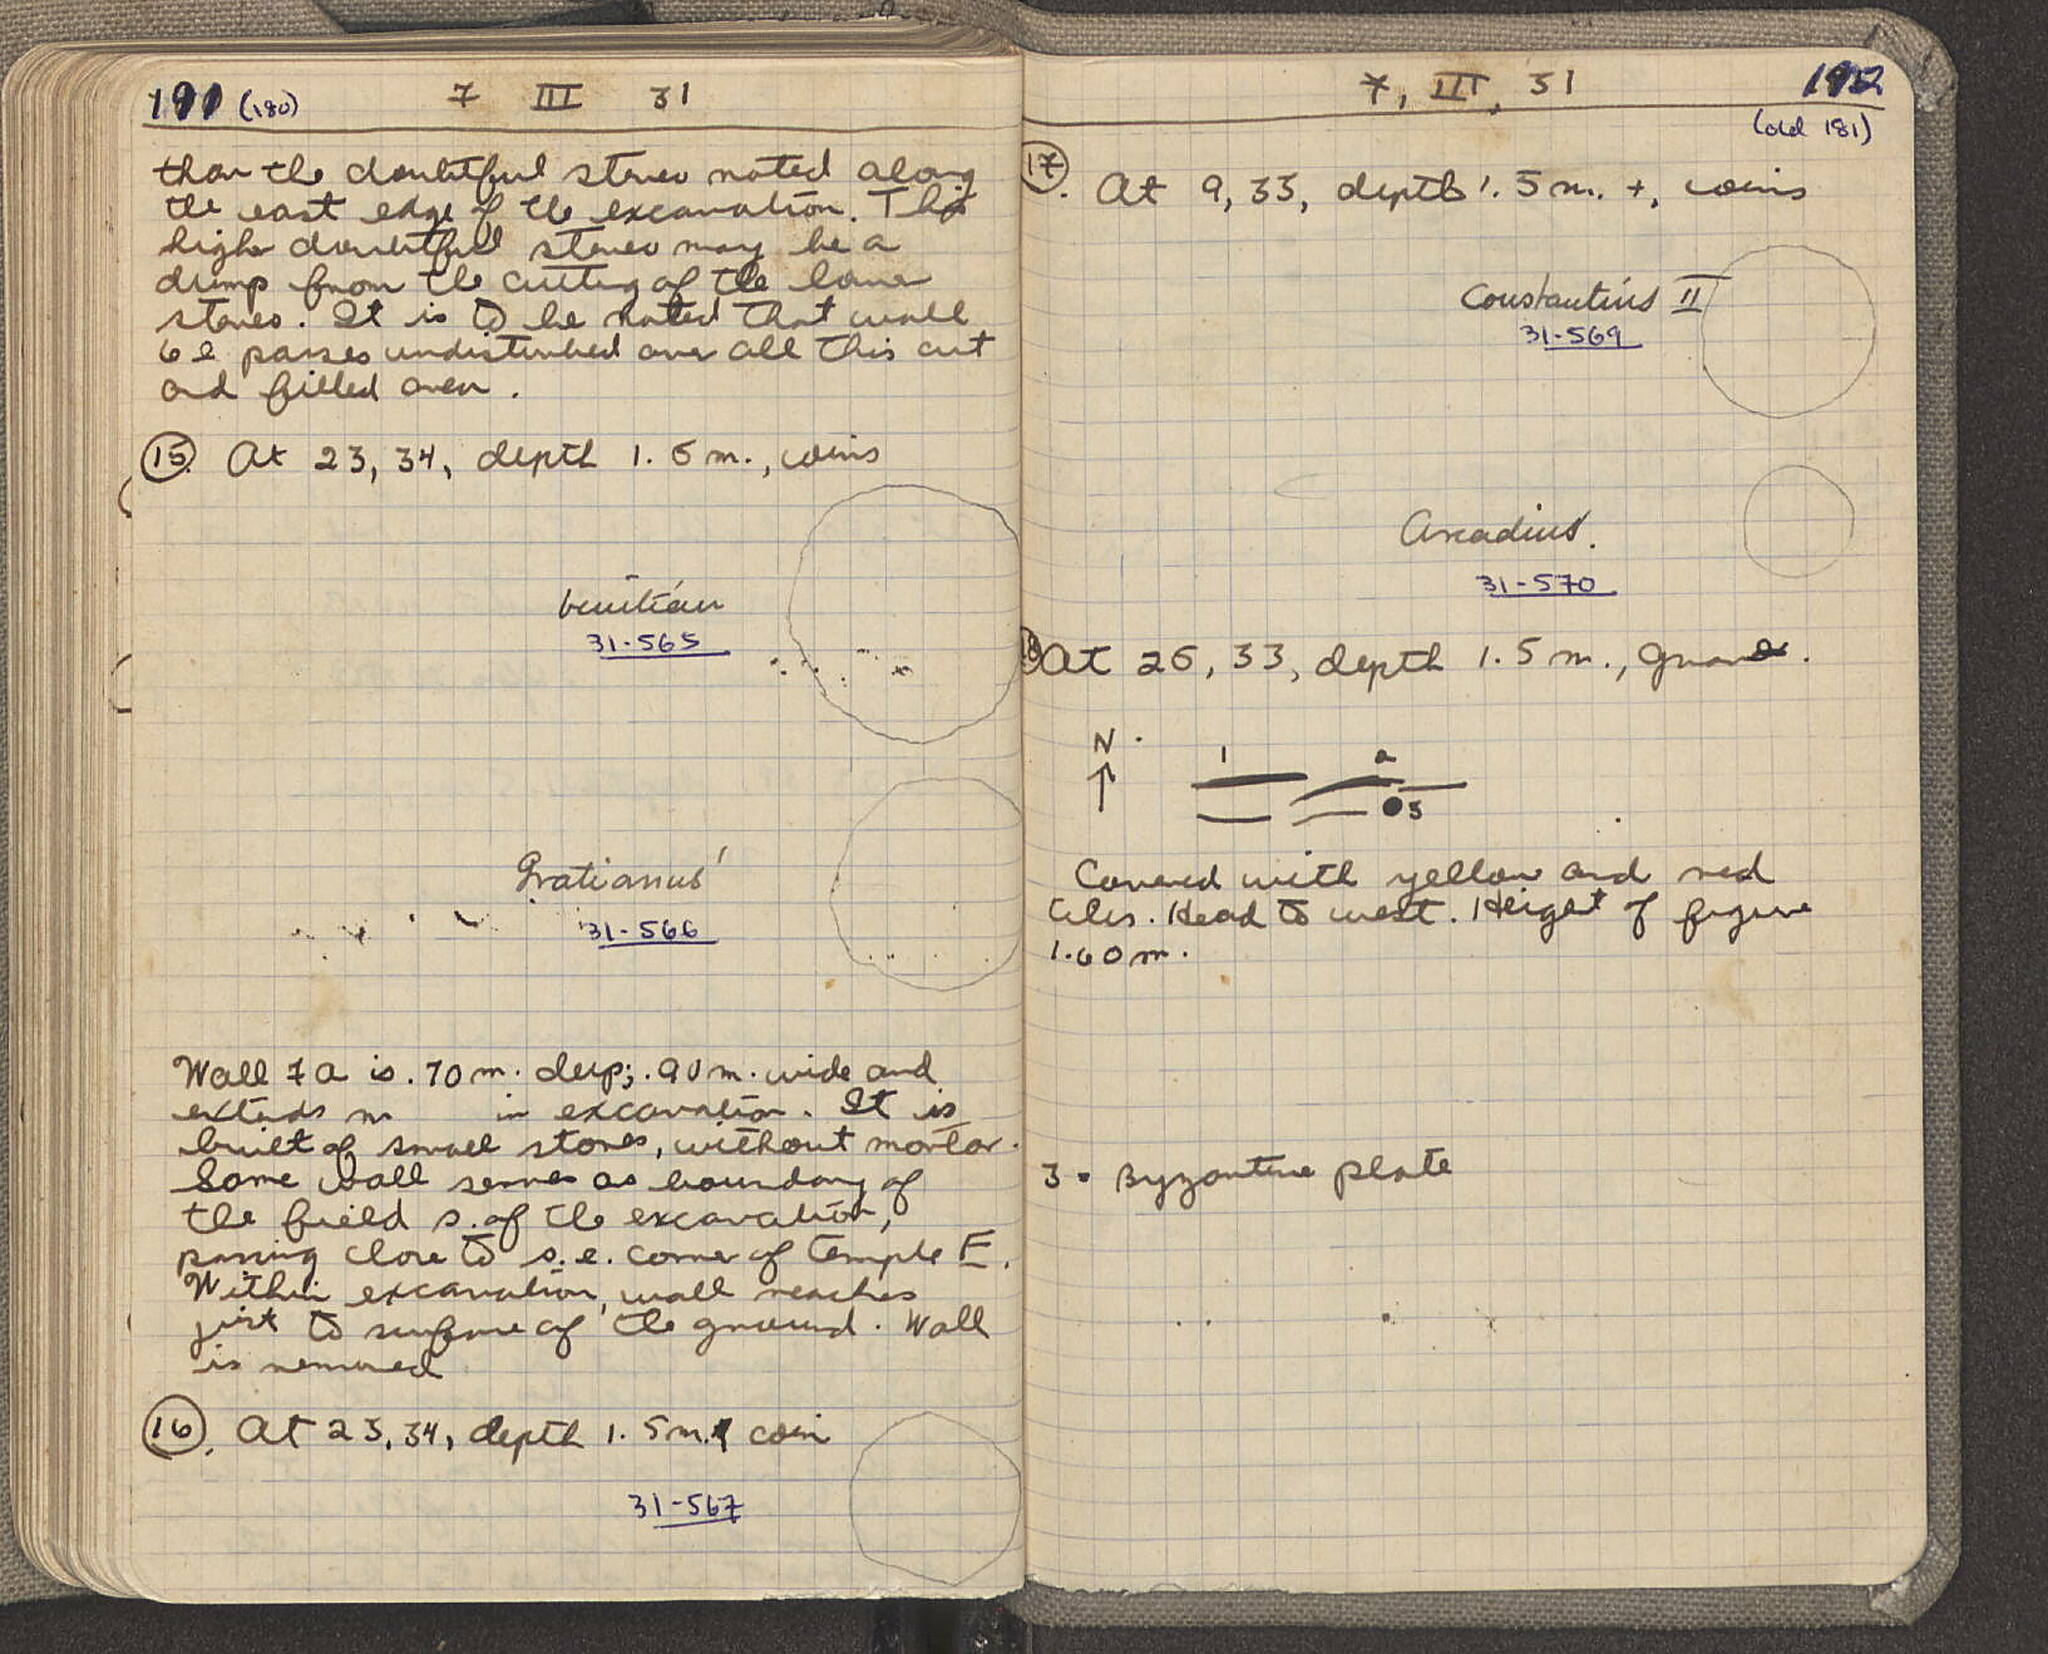 191 (180) 7 III 31
than the doubtful stereo noted along
the east edge of the excavation. This
high doubtful stereo may be a
dump from the cutting of the lower
stereo. It is to be noted that wall
6 e passes undisturbed over all this cut
and filled area.
15. At 23, 34, depth 1.5 m., coins
Venitian
31-565
Gratianus
31-566
Wall 7a is .70 m. deep; .90 m. wide and
extends m in excavation. It is
built of small stones, without mortar.
Same wall serves as boundary of
the field s. of the excavation,
passing close to s.e. corner of temple E.
Within excavation, wall reaches
just to surface of the ground. Wall
is removed
16. At 23, 34, depth 1.5 m., coin
31-567
7, III, 31 192
(old 181)
17. At 9, 33, depth 1.5 m. +, coins
Constantius II
31-569
Arcadius.
31-570
18 At 25, 33, depth 1.5 m., grave.
N
1 2
3
Covered with yellow and red
tiles. Head to west. Height of figure
1.60 m.
3 = Byzantine plate